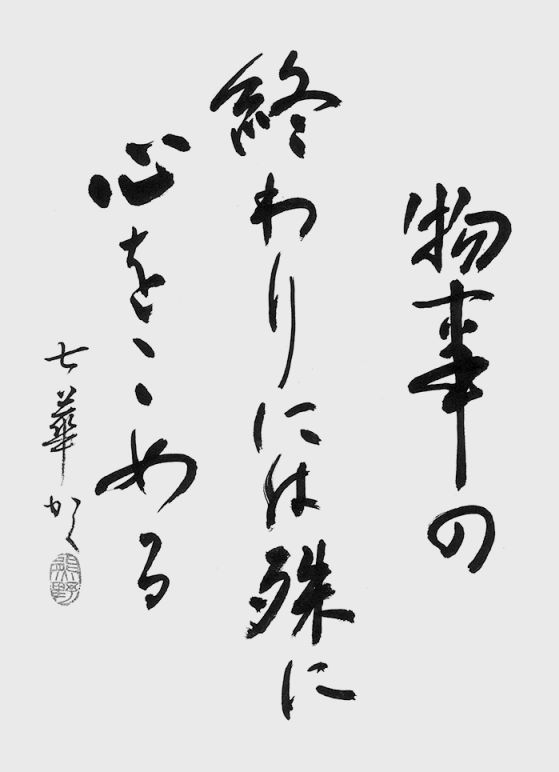 物事の
終わりには殊に
心をこめる
七華かく